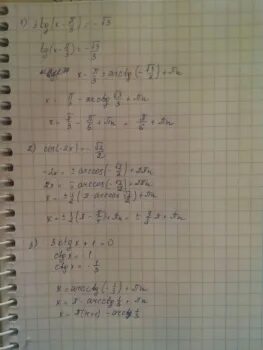 1) 3 tg(x - π/3) = -√3
tg(x - π/3) = -√3/3
x - π/3 = arctg(-√3/3) + πn
x = π/3 - arctg √3/3 + πn
x = π/3 - π/6 + πn = π/6 + πn
2) cos(-2x) = -√2/2
-2x = ± arccos(-√2/2) + 2πn
2x = ± arccos(-√2/2) + 2πn
x = ± 1/2 (π - arccos √2/2) + πn
x = ± 1/2 (π - π/4) + πn = ± 3/8 π + πn
3) 3 ctg x + 1 = 0
ctg x = -1
ctg x = -1/3
x = arcctg(-1/3) + πn
x = π - arcctg 1/3 + πn
x = π(n+1) - arcctg 1/3